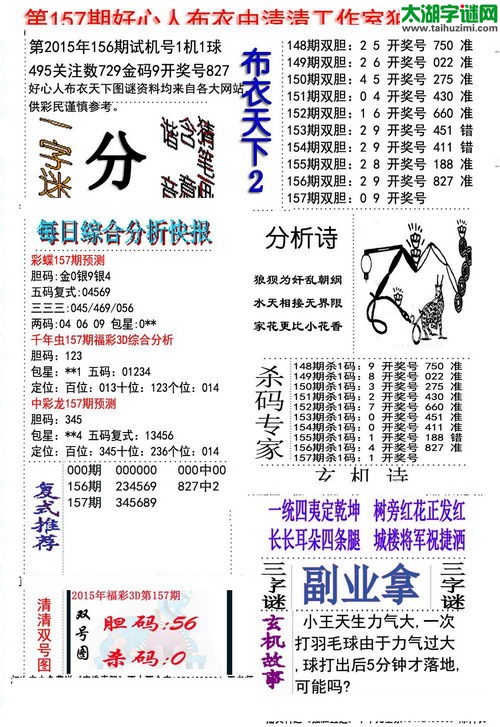 太湖字谜网
www.taihuzimi.com
第157期好心人布衣中清清工作室
第2015年156期试机号1机1球
495关注数729金码9开奖号827
好心人布衣天下图谜资料均来自各大网站
供彩民谨慎参考。
一字迷
分
布衣天下2
148期双胆:25 开奖号 750 准
149期双胆:26 开奖号 022 准
150期双胆:45 开奖号 275 准
151期双胆:04 开奖号 430 准
152期双胆:16 开奖号 660 准
153期双胆:29 开奖号 451 错
154期双胆:29 开奖号 411 错
155期双胆:28 开奖号 188 准
156期双胆:29 开奖号 827 准
157期双胆:09 开奖号
每日综合分析快报
彩蝶157期预测
胆码:金0银9银4
五码复式:04569
三三三:045/469/056
两码:04 06 09 包星:0**
千年虫157期福彩3D综合分析
胆码:123
包星:**1 五码:01234
定位:百位:013十位:123个位:014
中彩龙157期预测
胆码:345
包星:**4 五码:13456
定位:百位:345十位:236个位:014
分析诗
狼狈为奸乱朝纲
水天相接无界限
家花更比小花香
杀码专家
148期杀1码:9 开奖号 750 准
149期杀1码:8 开奖号 022 准
150期杀1码:3 开奖号 275 准
151期杀1码:2 开奖号 430 准
152期杀1码:7 开奖号 660 准
153期杀1码:0 开奖号 451 准
154期杀1码:0 开奖号 411 准
155期杀1码:1 开奖号 188 错
156期杀1码:4 开奖号 827 准
157期杀1码:1 开奖号
复式推荐
000期 000000 000中00
156期 234569 827中2
157期 345689
玄机诗
一统四夷定乾坤 树旁红花正发红
长长耳朵四条腿 城楼将军祝捷洒
清清双号图
2015年福彩3D第157期
双号图
胆码:56
杀码:0
三字谜
副业拿
三字谜
玄机故事
小王天生力气大,一次
打羽毛球由于力气过大
,球打出后5分钟才落地,
可能吗?